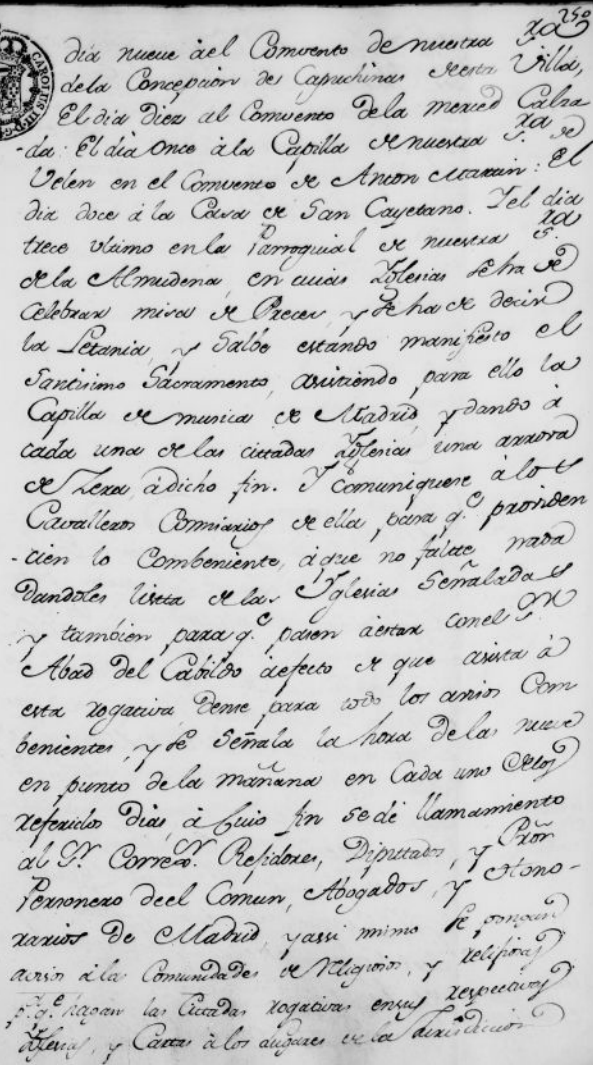 250
dia nueve àel Comvento de nuestra Sra
dela Concepcion de Capuchinas de esta Villa,
El dia diez al Comvento dela merced Calza
-da: El dia once à la Capilla de nuestra Sra de
Velen en el Comvento de Anton Martin: El
dia doce à la Casa de San Cayetano. Y el dia
trece vltimo en la Parroquial de nuestra Sra
de la Almudena, en cuias Yglesias se ha de
Celebrar misa de Preces, y se ha de decir
la Letania, y Salbe estando manifiesto el
Santisimo Sacramento, asistiendo para ello la
Capilla de musica de Madrid, y dando à
cada una de las cittadas Yglesias una arrova
de Zera, àdicho fin. Y comuniquese à los
Cavalleros Comisarios de ella para qe. providen
-cien lo Combeniente, àque no falte nada
dandoles listta de las Yglesias Señaladas
y tambien para qe. pasen àestar con el Sr.
Abad del Cabildo àefecto de que asista à
esta rogativa, dense para todo los avisos Com
benientes, y se Señala la hora de las nueve
en punto de la mañana en Cada uno de los
referidos dias, à Cuio fin se dè llamamiento
al Sr. Correxor. Rexidores, Diputtados, y Pror
Personero deel Comun, Abogados, y Hono-
rarios de Madrid, y assi mismo se pongan
avisos à la Comunidades de Religiosos, y religiosas
pa. qe. hagan las Citadas rogativas en sus respectivas
Yglesias, y Cartas à los Lugares de la Jurisdiccion